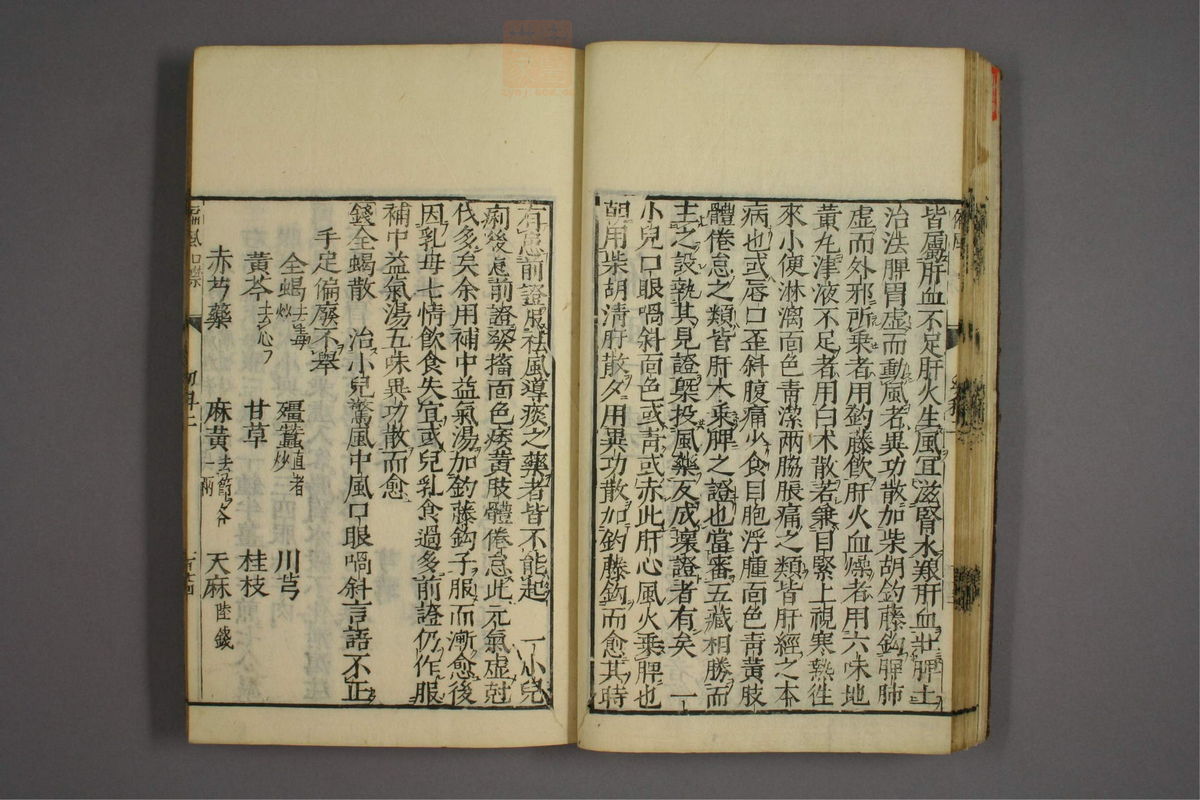 皆屬肝血不足肝火生風宜滋腎水養肝血壯脾土
治法脾胃虛而動風者異功散加柴胡鈎藤鈎脾肺
虛而外邪所乘者用鈎藤飲肝火血燥者用六味地
黃丸津液不足者用白术散若兼目緊上視寒熱徃
來小便淋漓面色青潔两脇脹痛之類皆肝經之本
病也或唇口歪斜腹痛少食目胞浮腫面色青黃肢
體倦怠之類皆肝木乘脾之證也當審五藏相勝而
主之設執其見證槩投風藥反成壞證者有矣 一
小兒口眼喎斜面色或青或赤此肝心風火乘脾也
朝用柴胡清肝散夕用異功散加鈎藤鈎而愈其時
有患前證服祛風導痰之藥者皆不能起 一小兒
痢後患前證發搐面色痿黃肢體倦怠此元氣虛尅
伐多矣余用補中益氣湯加鈎藤鈎子服而漸愈後
因乳母七情飲食失宜或兒乳食過多前證仍作服
補中益氣湯五味異功散而愈
錢全蝎散 治小兒驚風中風口眼喎斜言語不正
手足偏廢不舉
全蝎去毒炒 殭蠶直者炒 川芎
黃芩去心 甘草 桂枝
赤芍藥 麻黃去節各一兩 天麻陸錢